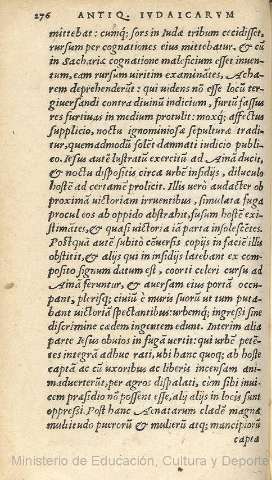 276 ANTIQ. IVDAICARVM
mittebãt: cumq́; sors in Iudæ tribum cecidisset,
rursum per cognationes eius mittebatur. & cũ
in Sachariæ cognatione maleficium esset inuen-
tum, eam rursum viritim examinãtes, Acha-
rem deprehenderũt: qui videns nõ esse locũ ter-
giuersandi contra diuinũ indicium, furtũ fassus
res furtiuas in medium protulit: moxq́; affectus
supplicio, noctu ignominiosæ sepulturæ tradi-
tur, quemadmodũ solẽt damnati iudicio publi-
co. Iesus autẽ lustratũ exercitũ ad Ainã ducit,
& noctu dispositis circa vrbẽ insidijs, diluculo
hostẽ ad certamẽ prolicit. Illis verò audacter ob
proximã victoriam irruentibus, simulata fuga
procul eos ab oppido abstrahit, fusum hostẽ exi-
stimãtes, & quasi victoria iã parta insolescẽtes.
Postquã autẽ subitò cõuersis copijs in faciẽ illis
obstitit, & alijs qui in insidijs latebant ex com-
posito signum datum est, coorti celeri cursu ad
Ainã feruntur, & auersam eius portã occu-
pant, plerisq́; ciuiũ è muris suorũ vt tum puta-
bant victoriã spectantibus: vrbemq́; ingressi sine
discrimine cædem ingentem edunt. Interim alia
parte Iesus obuios in fugã vertit: qui vrbẽ petẽ-
tes integrã adhuc rati, vbi hanc quoq́; ab hoste
captã ac cũ vxoribus ac liberis incensam ani-
maduerterũt, per agros dispalati, cum sibi inui-
cem præsidio nõ possent esse, alij alijs in locis sunt
oppressi. Post hanc Aenatarum cladẽ magna
multitudo puerorũ & mulierũ atq́; mancipiorũ
capta
Ministerio de Educación, Cultura y Deporte